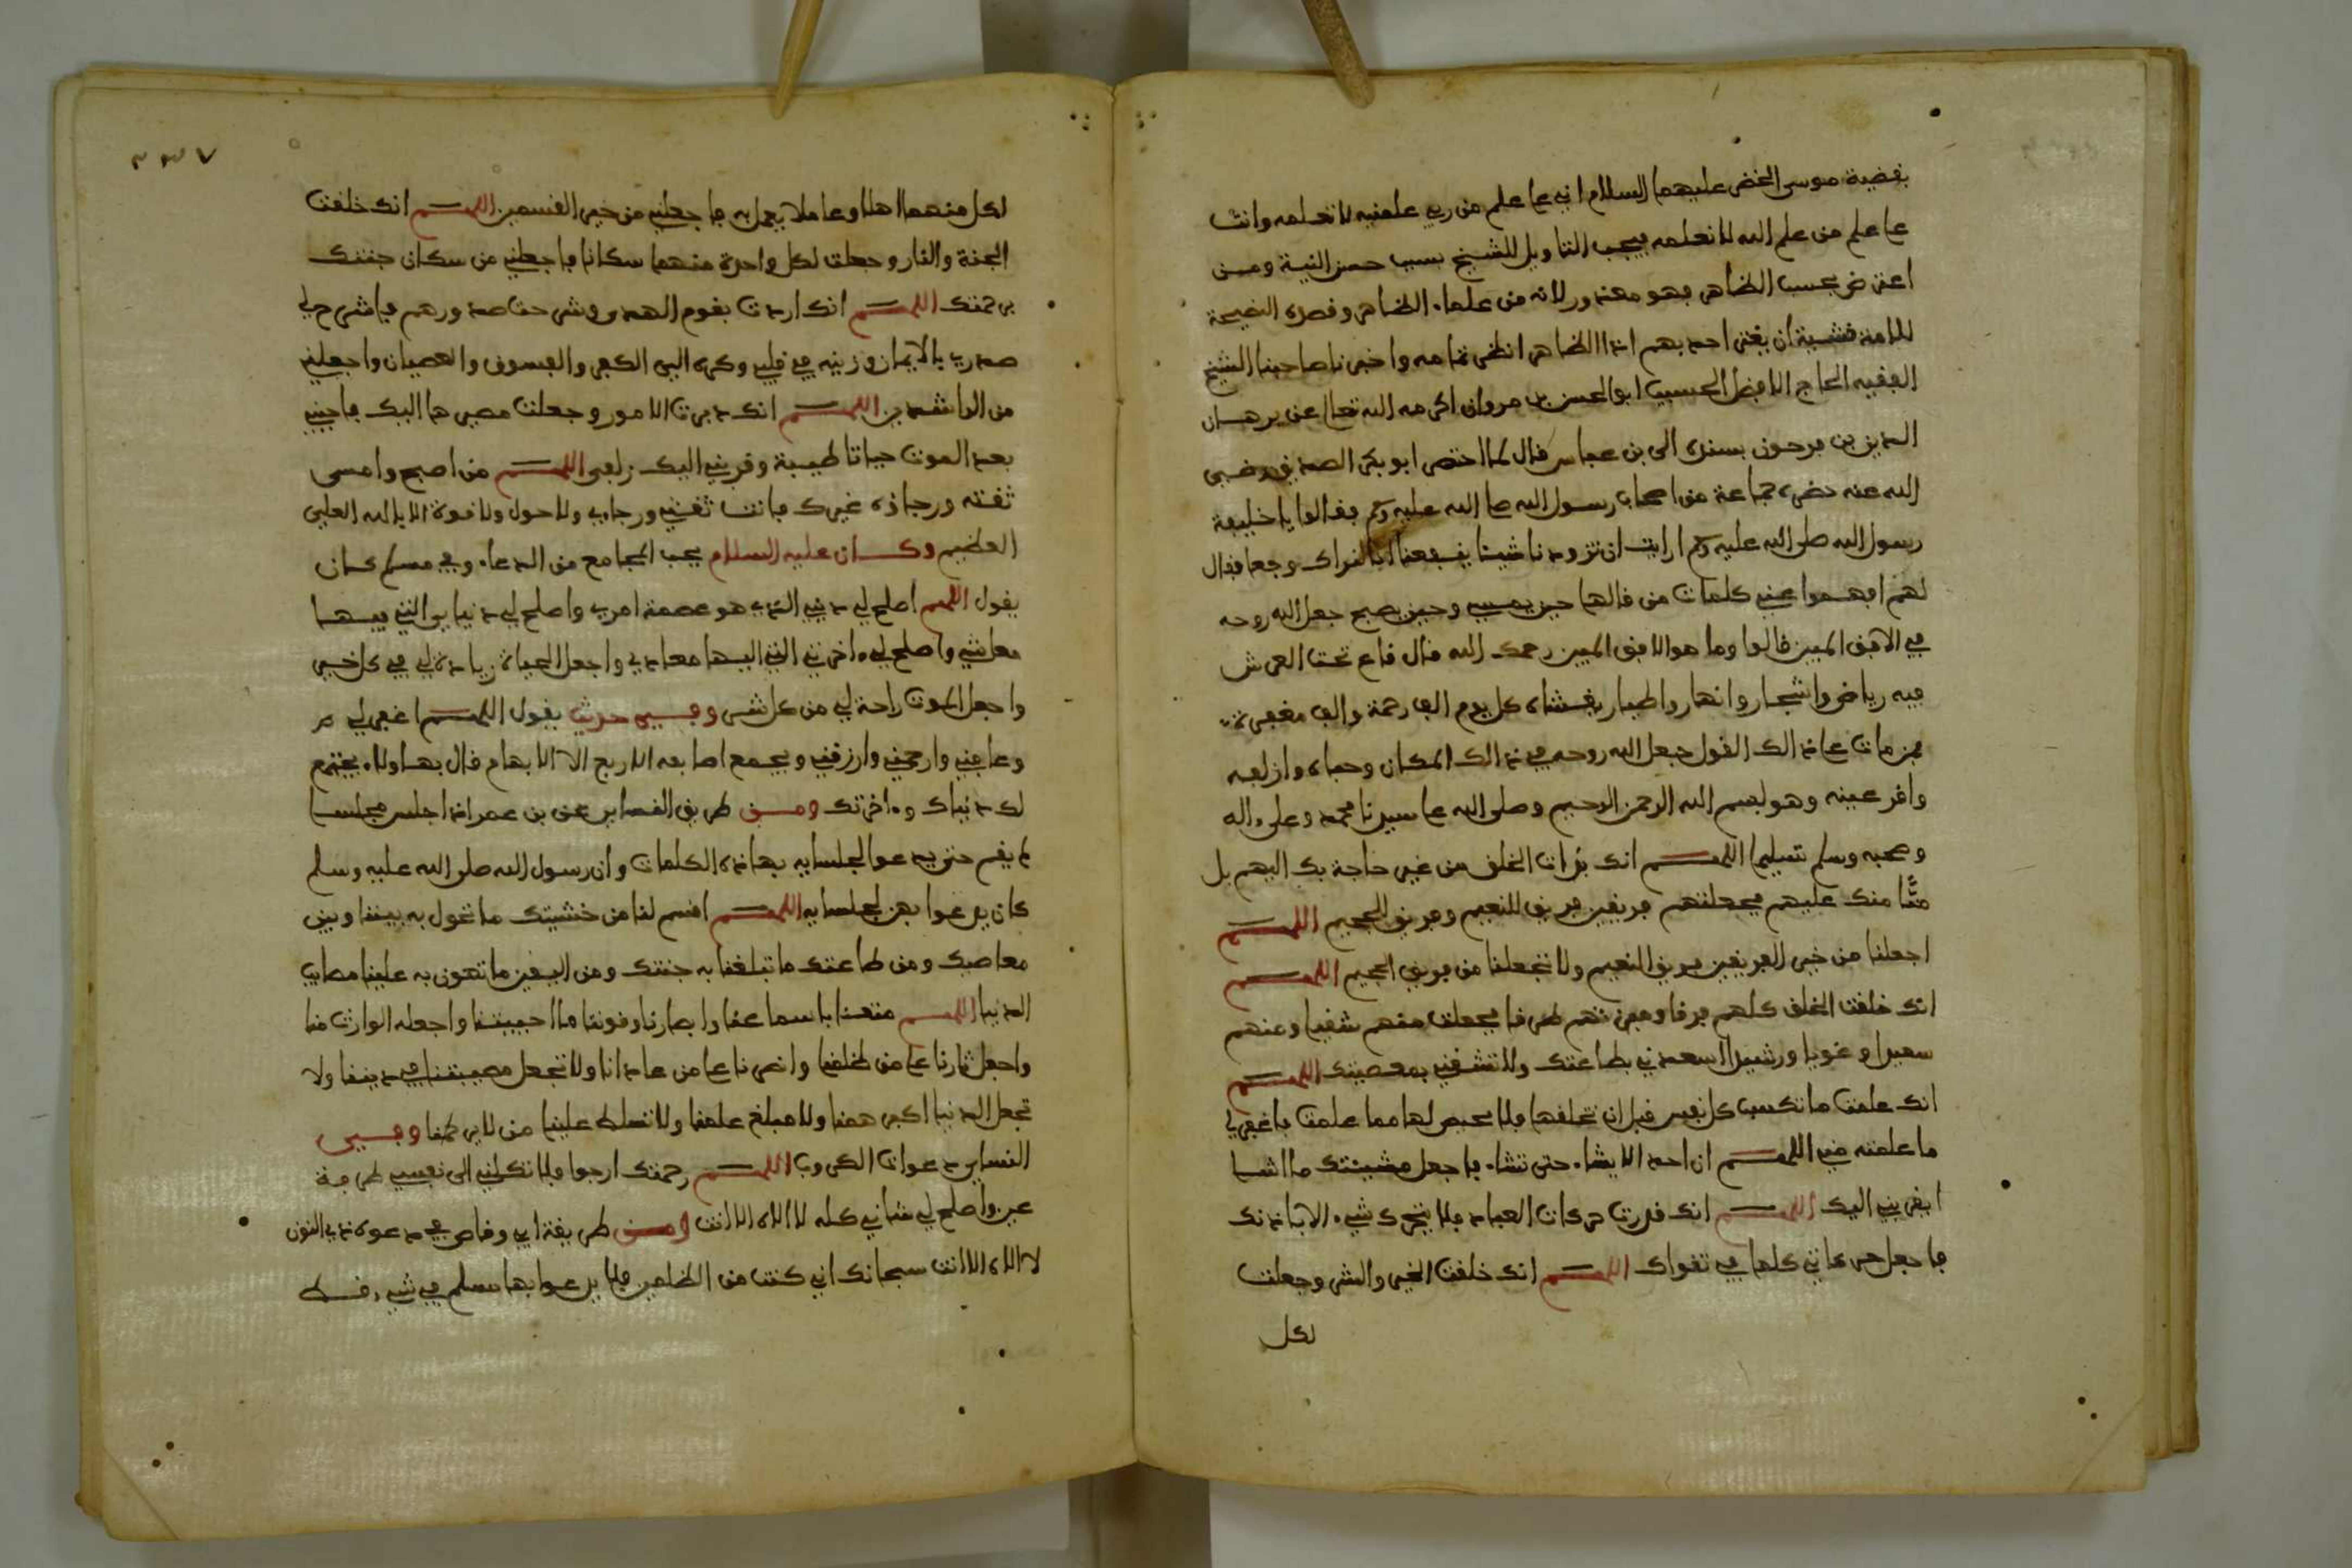 بقضية موسى الخضر عليهما السلام اني على علم من ربي علمنيه لا تعلمه وانت
على علم من علم الله لا نعلمه فيجب التاويل للشيخ بسبب حسن النية ومن
اعترض بحسب الظاهر فهو معذور لانه من علماء الظاهر وقصده النصيحة
للامة خشية ان يغتر احد بهم اذا الظاهر انظر تمامه واخبرنا صاحبنا الشيخ
الفقيه الحاج الافضل الحسيب ابو الحسن بن مروان اكرمه الله تعالى عن برهان
الدين بن فرحون بسنده الى بن عباس قال لما احتضر ابو بكر الصديق رضي
الله عنه حضره جماعة من اصحاب رسول الله صلى الله عليه وسلم فقالوا يا خليفة
رسول الله صلى الله عليه وسلم ارايت ان تزودنا شيئا ينفعنا انا لنراك وجعا فقال
لهم افهموا عني كلمات من قالها حين يمسي وحين يصبح جعل الله روحه
في الافق المبين قالوا وما هو الافق المبين رحمك الله قال قاع تحت العرش
فيه رياض واشجار وانهار واطيار يغشاه كل يوم الف رحمة والف مغفرة
فمن مات على ذالك القول جعل الله روحه في ذالك المكان وحباه وازلفه
واقر عينه وهو بسم الله الرحمن الرحيم وصلى الله على سيدنا محمد وعلى ءاله
وصحبه وسلم تسليما اللهم انك برات الخلق من غير حاجة بك اليهم بل
منا منك عليهم فجعلتهم فريقين فريق للنعيم وفريق للجحيم اللهم
اجعلنا من خير الفريقين فريق النعيم ولا تجعلنا من فريق الجحيم اللهم
انك خلقت الخلق كلهم فرقا وميزتهم طرقا فجعلت منهم شقيا ومنهم
سعيدا وغويا ورشيدا اسعدني بطاعتك ولا تشقني بمعصيتك اللهم
انك علمت ما تكسب كل نفس قبل ان تخلقها فلا محيص لها مما علمت فاغفر لي
ما علمته مني اللهم ان احد لا يشاء حتى تشاء فاجعل مشيئتك ما اشا
ايقربني اليك اللهم انك قدرت حركات العباد فلا يتحرك شيء الا باذنك
فاجعل حركاتي كلها في تقواك اللهم انك خلقت الخير والشر وجعلت
لكل
لكل منهما اهلا وعاملا يعمل به فاجعلني من خير القسمين اللهم انك خلقت
الجنة والنار وجعلت لكل واحدة منهما سكانا فاجعلني من سكان جنتك
برحمتك اللهم انك اردت بقوم الهدى وشرحت صدورهم فاشرح لي
صدري بالايمان وزينه في قلبي وكره الي الكفر والفسوق والعصيان واجعلني
من الراشدين اللهم انك دبرت الامور وجعلت مصيرها اليك فاحيني
بعد الموت حياتا طيبة وقربني اليك زلفى اللهم من اصبح وامسى
ثقته ورجاؤه غيرك فانت ثقتي ورجاي ولا حول ولا قوة الا بالله العلي
العظيم وكان عليه السلام يحب الجامع من الدعاء وفي مسلم كان
يقول اللهم اصلح لي ديني الذي هو عصمة امري واصلح لي دنياي التي فيها
معاشي واصلح لي ءاخرتي التي اليها معادي واجعل الحياة زيادة لي في كل خير
واجعل الموت راحة لي من كل شر وفي حديث يقول اللهم اغفر لي
وعافني وارحمني وارزقني ويجمع اصابعه الاربع الا الابهام قال بهاولاء يجتمع
لك دنياك وءاخرتك ومن طريق النساي عن بن عمر اذا جلس مجلسا
لم يقم حتى يدعو لجلسايه بهاذه الكلمات وان رسول الله صلى الله عليه وسلم
كان يدعوا بهن لجلسايه اللهم اقسم لنا من خشيتك ما تحول به بيننا وبين
معاصيك ومن طاعتك ما تبلغنا به جنتك ومن اليقين ما تهون به علينا مصايب
الدنيا اللهم متعنا باسماعنا وابصارنا وقوتنا ما احييتنا واجعله الوارث منا
واجعل ثارنا على من ظلمنا وانصرنا على من عادانا ولا تجعل مصيبتنا في ديننا ولا
تجعل الدنيا اكبر همنا ولا مبلغ علمنا ولا تسلط علينا من لا يرحمنا وفي
النساي دعوات المكروب اللهم رحمتك ارجوا فلا تكلني الى نفسي طرفة
عين واصلح لي شاني كله لا الاه الا انت ومن طريقة ابي وقاص في دعوة ذي النون
لا الاه الا انت سبحانك اني كنت من الظلمين فلا يدعوا بها مسلم في شيء قط